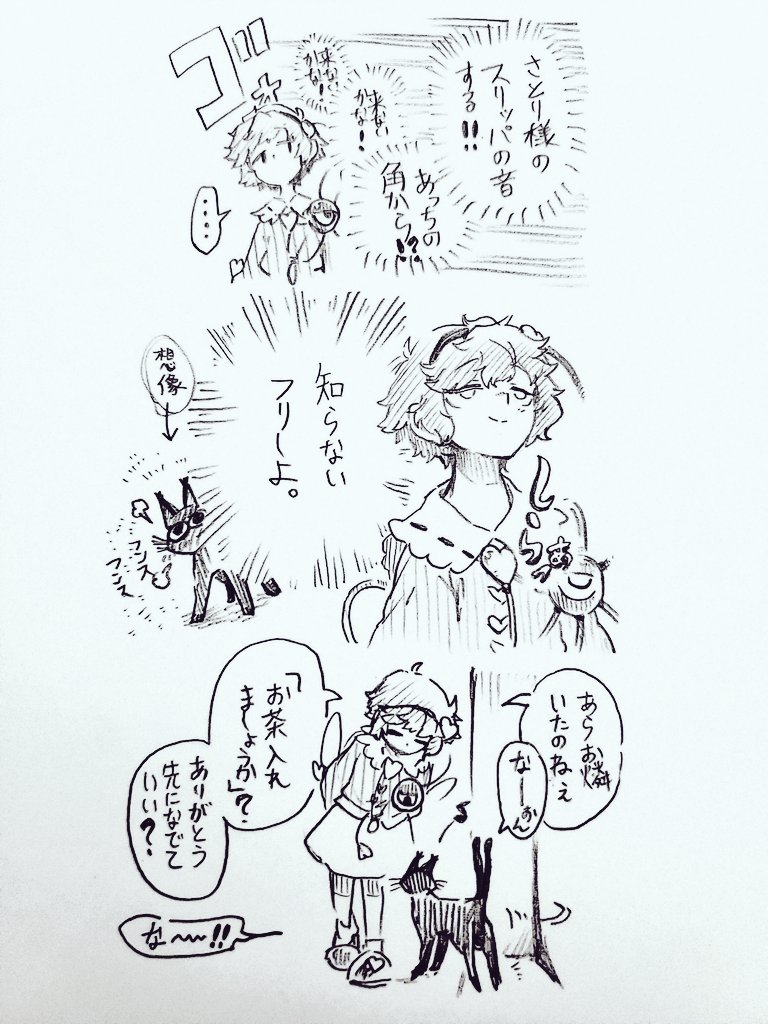 さとり様の
スリッパの音
する!!
あっちの
角から!?
来ない
かな!
来ない
かな!
ゴ
‥‥
知らない
フリーよ。
しらぁっ
想像
フンス
フンス
あらお燐
いたのねぇ
なーおん
「お茶入れ
ましょうか」?
ありがとう
先になでて
いい?
な〜!!